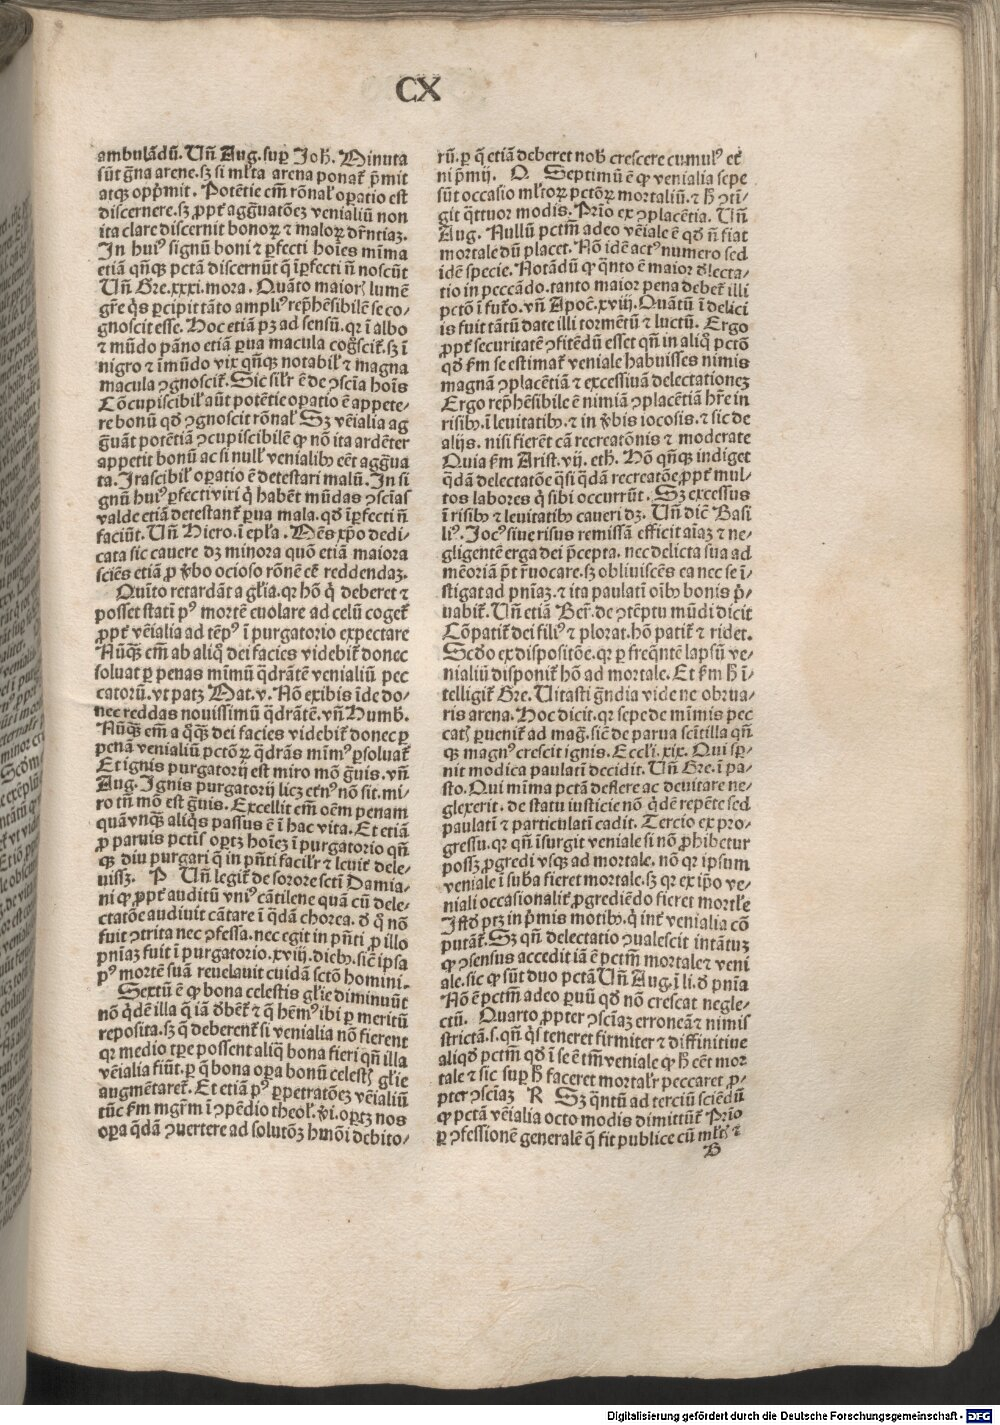 CX
ambulādū. Vn̄ Aug. sup̲ Joh̄. Minuta
sūt gͣna arene. sꝫ si ml̄ta arena ponat᷑ p̄mit
atqꝫ opp̄mit. Potētie em̄ rōnal̓ op̲atio est
discernere. sꝫ ꝓpt̓ aggͣuatōeꝫ venialiū non
ita clare discernit bonoꝝ ⁊ maloꝝ dr̄ntiaꝫ.
In huiꝰ signū boni ⁊ p̲fecti hoīes mīma
etiā qn̄qꝫ pctā discernūt q̄ īp̲fecti n̄ noscūt
Vn̄ Gre. xxxi. mora. Quāto maiorꝭ lumē
gr̄e qͥs p̲cipit tāto ampliꝰ rep̄hēsibilē se co⸗
gnoscit esse. Hoc etiā pꝫ ad sensū. qꝛ ī albo
⁊ mūdo pāno etiā p̲ua macula cog̓scit᷑. sꝫ ī
nigro ⁊ īmūdo vix qn̄qꝫ notabil̓ ⁊ magna
macula ꝯgnoscit᷑. Sic sil̓r ē de ꝯscīa hoīs
Cōcupiscibil̓ aūt potētie op̲atio ē appete⸗
re bonū qd̓ ꝯgnoscit rōnal̓ Sꝫ vēialia ag
gͣuāt potētiā ꝯcupiscibilē ꝙ nō ita ardēter
appetit bonū ac si nullꝰ venialibꝰ eēt aggͣua
ta. Irascibil̓ op̲atio ē detestari malū. In si
gnū huiꝰ p̲fecti viri qͥ habēt mūdas ꝯscīas
valde etiā detestant᷑ p̲ua mala. qd̓ īp̲fecti n̄
faciūt. Vn̄ Hiero. ī epl̄a. Mēs xp̄o dedi⸗
cata sic cauere dꝫ minora quō etiā maiora
sciēs etiā ꝓ v̓bo ocioso rōnē eē reddendaꝫ.
Quīto retardāt a gl̄ia. qꝛ hō qͥ deberet ⁊
posset statī pꝰ mortē euolare ad celū coget᷑
ꝓpt̓ vēialia ad tēpꝰ ī purgatorio expectare
Nūqͣꝫ em̄ ab aliqͦ dei facies videbit᷑ donec
soluat᷑ p̲ penas mīmū qͣdrātē venialiū pec
catorū. vt patꝫ Mat. v. Nō exibis īde do⸗
nec reddas nouissimū qͣdrātē. vn̄ Humb̄.
Nūqͣꝫ em̄ a qͦqͣꝫ dei facies videbit᷑ donec p̲
penā venialiū pctōꝝ qͣdrās mīmꝰ p̲soluat᷑
Et ignis purgatorij est miro mō gͣuis. vn̄
Aug. Ignis purgatorij licꝫ et̓nꝰ nō sit. mi⸗
ro tn̄ mō est gͣuis. Excellit em̄ oēm penam
quāvnqͣꝫ aliqͥs passus ē ī hac vita. Et etiā
ꝓ paruis pctīs oportꝫ hoīeꝫ ī purgatorio qn̄
qꝫ diu purgari q̄ in p̄nti facil̓r ⁊ leuit̓ dele⸗
uissꝫ. P Vn̄ legit᷑ de sorore scti Damia⸗
ni ꝙ ꝓpt̓ auditū vniꝰ cātilene quā cū dele⸗
ctatōe audiuit cātare ī qͣdā chorea. d̓ qͦ nō
fuit ꝯtrita nec ꝯfessa. nec egit in p̄nti ꝓ illo
pn̄iaꝫ fuit ī purgatorio. xviij. diebꝰ. siē ip̄sa
pꝰ mortē suā reuelauit cuidā sctō homini.
Sextū ē ꝙ bona celestis gl̄ie diminuūt
nō qͥdē illa q̄ iā dēbet᷑ ⁊ q̄ hēmꝰ ibi p̲ meritū
reposita. sꝫ q̄ deberent᷑ si venialia nō fierent
qꝛ medio tp̲e possent aliq̄ bona fieri qn̄ illa
vēialia fiūt. p̲ q̄ bona op̲a bonū celestꝭ gl̄ie
augmētaret᷑. Et etiā pꝰ p̲petratōeꝫ vēialiū
tūc fm̄ mgr̄m ī ꝯpēdio theol̓. v̓i. oportꝫ nos
op̲a qͣdā ꝯuertere ad solutōꝫ hmōi debito⸗
rū. p̲ q̄ etiā deberet nob̄ crescere cumulꝰ et̓
ni p̄mij. Q Septimū ē ꝙ venialia sepe
sūt occasio ml̄toꝝ pctōꝝ mortaliū. ⁊ h̄ ꝯtī⸗
git qͣttuor modis. Prīo ex ꝯplacētia. Vn̄
Aug. Nullū pctm̄ adeo vēiale ē qd̓ n̄ fiat
mortale dū placet. Nō idē actꝰ numero sed
idē specie. Notādū ꝙ qͣnto ē maior d̓lecta⸗
tio in peccādo. tanto maior pena debet᷑ illi
pctō ī futͦo. vn̄ Apoc̄. xviij. Quātū ī delici
is fuit tātū date illi tormētū ⁊ luctū. Ergo
ꝓpt̓ securitatē ꝯfitēdū esset qn̄ in aliqͦ pctō
qd̓ fm̄ se estimat᷑ veniale habuisses nimis
magnā ꝯplacētiā ⁊ excessiuā delectationeꝫ
Ergo rep̄hēsibile ē nimiā ꝯplacētiā hr̄e in
risibꝰ, ī leuitatibꝰ, ⁊ in v̓bis iocosis. ⁊ sic de
alijs. nisi fierēt cā recreatōnis ⁊ moderate
Quia fm̄ Arist. vij. eth̓. Hō qn̄qꝫ indiget
qͣdā delectatōe qͣsi qͣdā recreatōe, ꝓpt̓ mul⸗
tos labores qͥ sibi occurrūt. Sꝫ excessus
ī risibꝰ ⁊ leuitatibꝰ caueri dꝫ. Vn̄ dic̄ Basi
liꝰ. Jocꝰ siue risus remissā efficit aīaꝫ ⁊ ne⸗
gligentē erga dei p̄cepta. nec delicta sua ad
mēoriā pōt r̄uocare. sꝫ obliuiscēs ea nec se ī⸗
stigat ad pn̄iaꝫ. ⁊ ita paulati oībꝰ bonis p̄⸗
uabit᷑. Vn̄ etiā Ber̄. de ꝯtēptu mūdi dicit
Cōpatit᷑ dei filiꝰ ⁊ plorat. hō patit᷑ ⁊ ridet.
Scd̓o ex dispositōe. qꝛ p̲ freqͣntē lapsū ve⸗
nialiū disponit᷑ hō ad mortale. Et fm̄ h̄ ī⸗
telligit᷑ Gre. Uitasti gͣndia vide ne obrua⸗
ris arena. Hoc dicit. qꝛ sepe de mīmis pec
catꝭ p̲uenit᷑ ad mag̓. siē de parua scītilla qn̄
qꝫ magnꝰ crescit ignis. Eccli. xix. Qui sp̲⸗
nit modica paulatī decidit. Vn̄ Gre. ī pa⸗
sto. Qui mīma pctā deflere ac deuitare ne⸗
glexerit. de statu iusticie nō qͥdē repēte sed
paulatī ⁊ particulatī cadit. Tercio ex pro⸗
gressu. qꝛ qn̄ īsurgit veniale si nō ꝓhibetur
possꝫ ꝓgredi vsqꝫ ad mortale. nō qꝛ ip̄sum
veniale ī suba fieret mortale. sꝫ qꝛ ex ip̄o ve⸗
niali occasionalit̓ ꝓgrediēdo fieret mortl̓e
Istd̓ ptꝫ in p̄mis motibꝰ. qͥ int̓ venialia cō
putāt᷑. Sꝫ qn̄ delectatio ꝯualescit intātuꝫ
ꝙ ꝯsensus accedit iā ē pctm̄ mortale ⁊ veni
ale. sic ꝙ sūt duo pctā Vn̄ Aug. ī li. d̓ pn̄ia
Nō ē pctm̄ adeo p̲uū qd̓ nō crescat negle⸗
ctū. Quarto ꝓpter ꝯscīaꝫ erroneā ⁊ nimis
strictā. s. qn̄ qͥs teneret firmiter ⁊ diffinitiue
aliqd̓ pctm̄ qd̓ ī se ē tm̄ veniale ꝙ h̄ eēt mor
tale ⁊ sic sup̲ h̄ faceret mortal̓r peccaret ꝓ⸗
pter ꝯscīaꝫ R Sꝫ qͣntū ad terciū sciēdū
ꝙ pctā vēialia octo modis dimittūt᷑ Prīo
p̲ ꝯfessionē generalē q̄ fit publice cū ml̄tꝭ ⁊
B
Digitalisierung gefördert durch die Deutsche Forschungsgemeinschaft - DFG